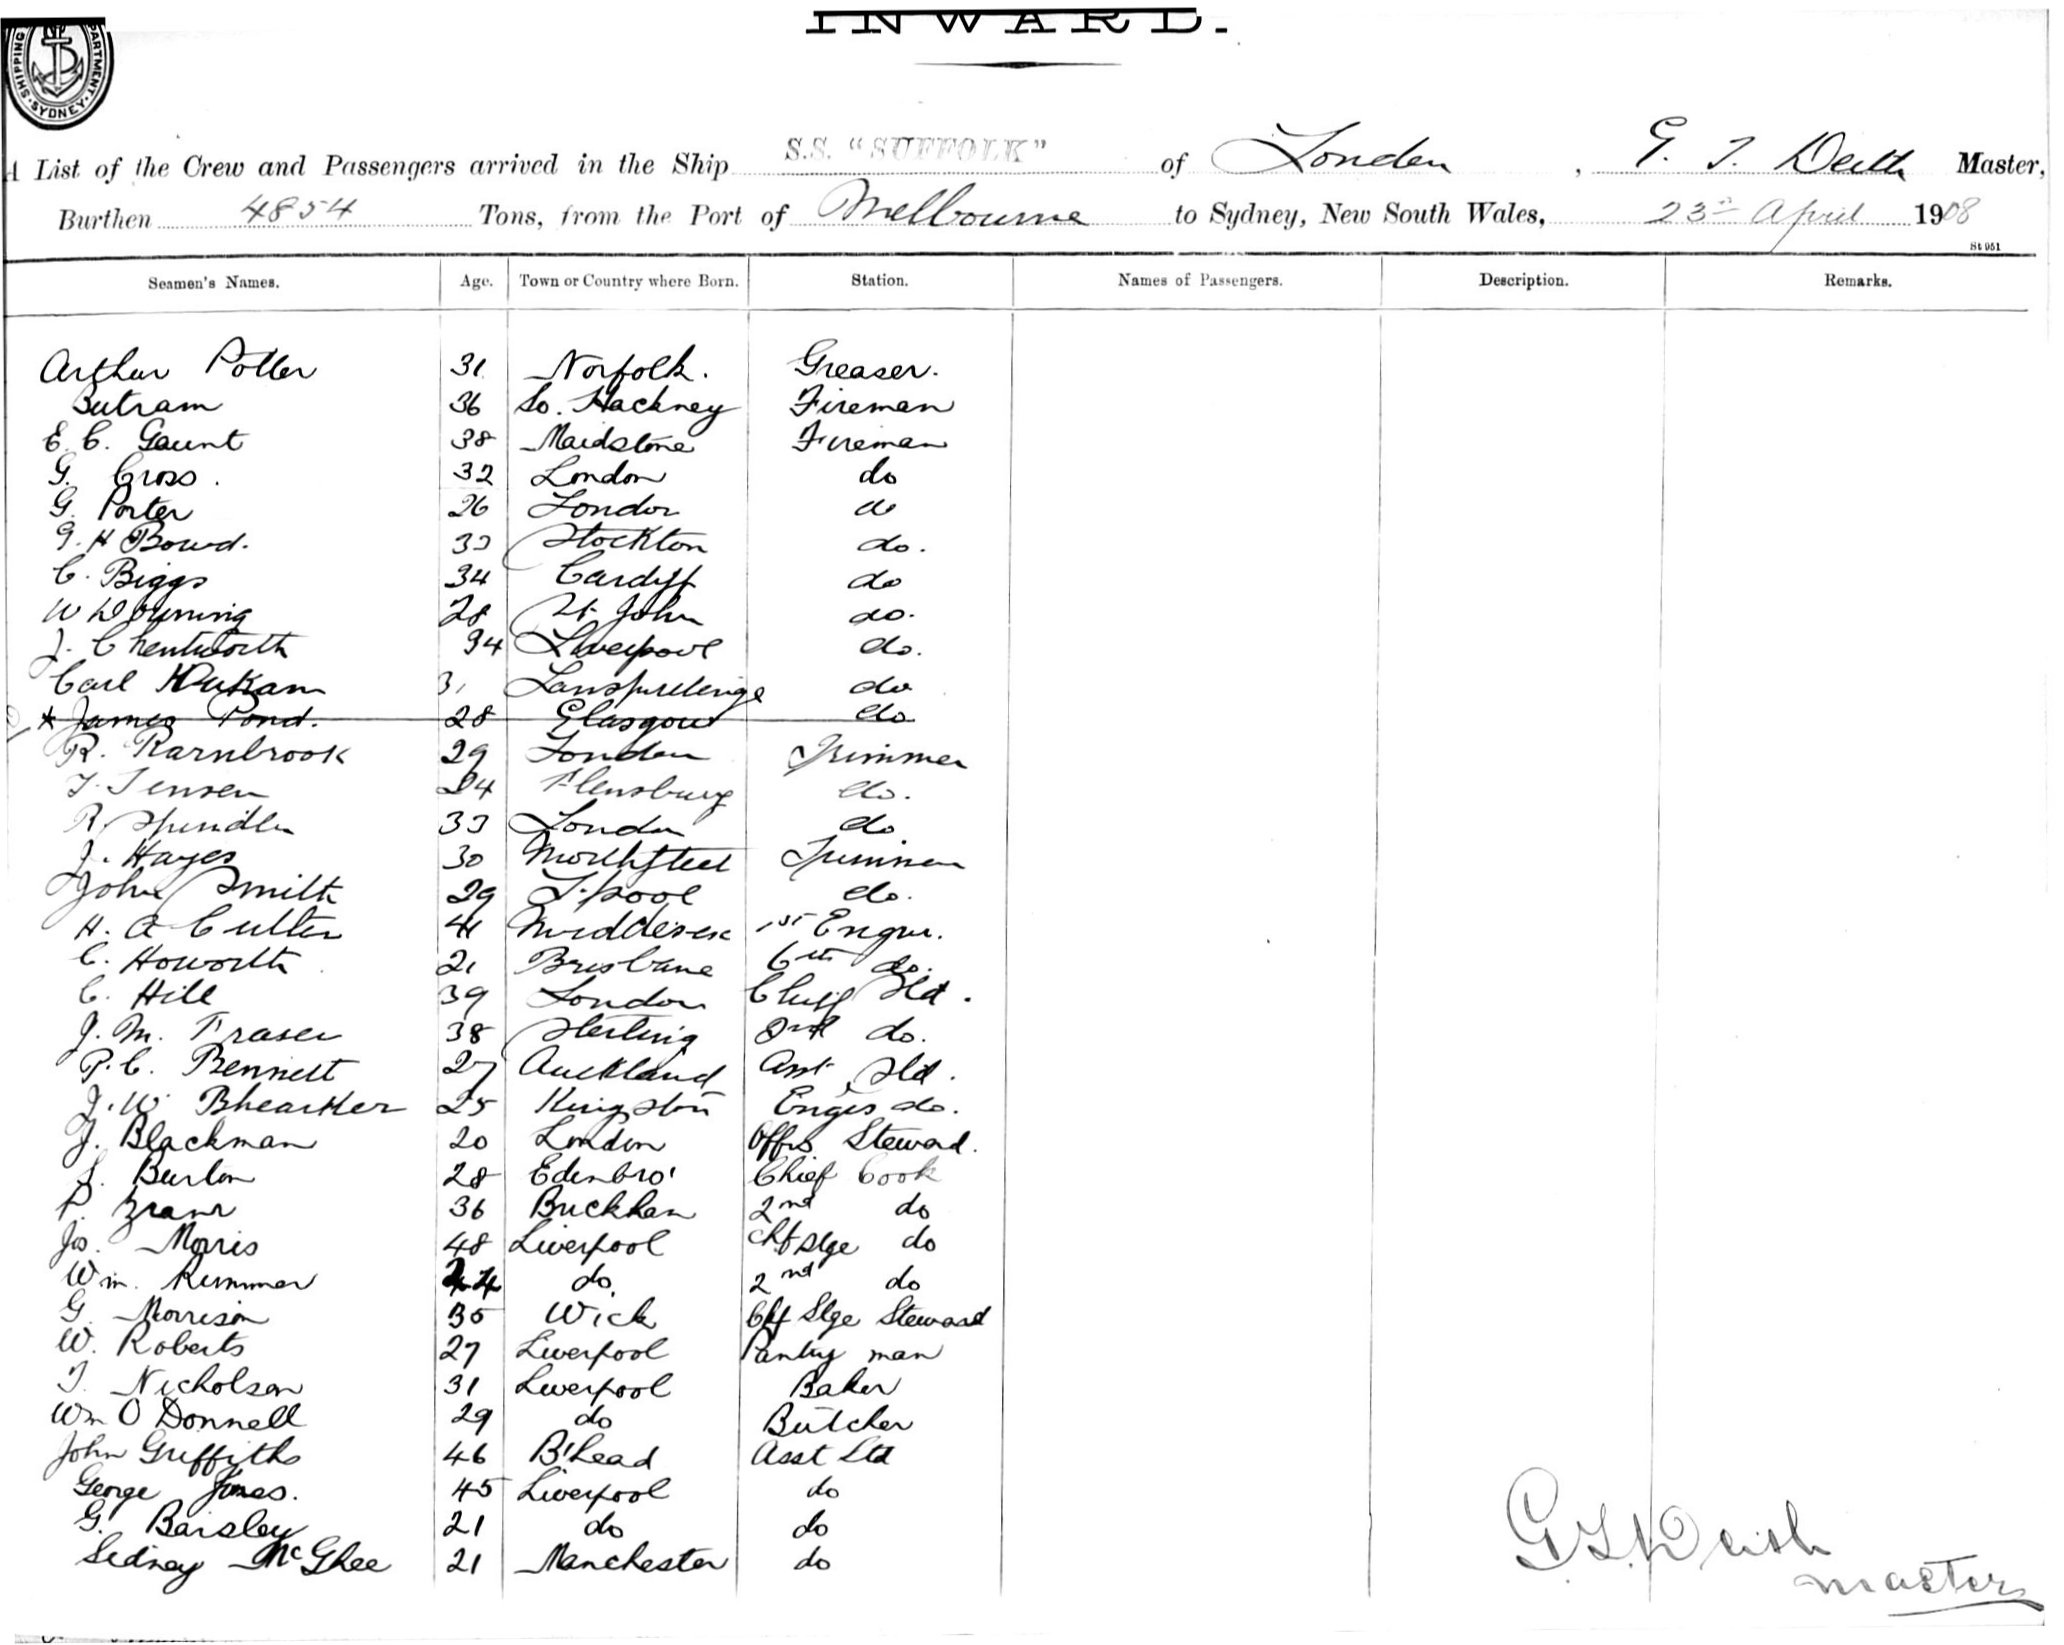 INWARD.
SHIPPING DEPARTMENT. SYDNEY.
A List of the Crew and Passengers arrived in the Ship S.S. "SUFFOLK" of London, G. T. Deith Master,
Burthen 4854 Tons, from the Port of Melbourne to Sydney, New South Wales, 23rd April 1908
St 051
Seamen's Names. Age. Town or Country where Born. Station. Names of Passengers. Description. Remarks.
Arthur Potter 31 Norfolk. Greaser.
Butram 36 So. Hackney Fireman
E. C. Gaunt 38 Maidstone Fireman
G. Cross. 32 London do
G. Porter 26 London do
G. H Bowd. 33 Stockton do.
C. Biggs 34 Cardiff do
W Downing 28 St John do.
J. Chentworth 34 Liverpool do.
Carl 31 do
* James Pond. 28 Glasgow do
R. Rarnbrook 29 London Trimmer
T. Jensen 24 Flensburg do.
R Spindler 33 London do
J. Hayes 30 Northfleet Trimmer
John Smith 29 L'pool do.
H. A Cutler 41 Middlesex 1st Engnr.
C. Howorth 21 Brisbane 6th do.
C. Hill 39 London Chief Std.
J. M. Fraser 38 Sterling 2nd do.
P. C. Bennett 27 Auckland Asst Std.
J. W. Bhearker 25 Kingston Engrs do.
J. Blackman 20 London Offrs Steward.
S. Burton 28 Edenbro' Chief Cook
P. 36 Buckhan 2nd do
Jos. Morris 48 Liverpool Chf Stge do
Wm. Rimmer 44 do. 2nd do
G. Morrison 35 Wick Chf Stge Steward
W. Roberts 27 Liverpool Pantry man
T. Nicholson 31 Liverpool Baker
Wm O Donnell 29 do Butcher
John Griffiths 46 B'head Asst Std
George Jones. 45 Liverpool do
G. Baisley 21 do do
Sidney McGhee 21 Manchester do
G. T. Deith
master